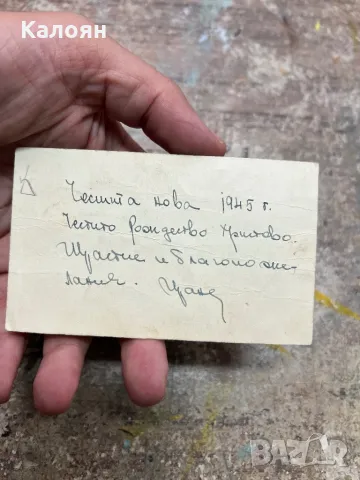 Калоян
Честита нова 1945 г.
Честито Рождество Христово.
Щастие и благопоже-
лания.
BAZAR